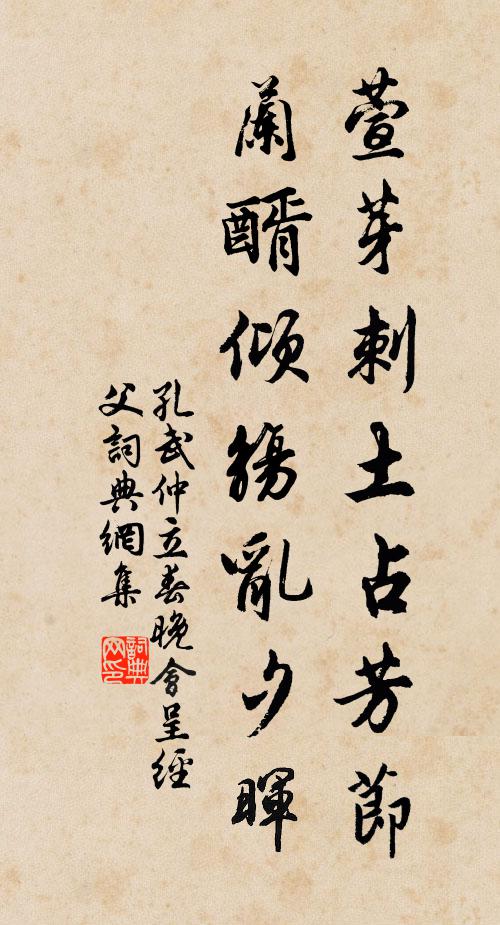 萱芽刺土占芳節
蘭醑傾觴亂夕暉
孔武仲立春晚會呈經
父詞典網集
詞典
网印